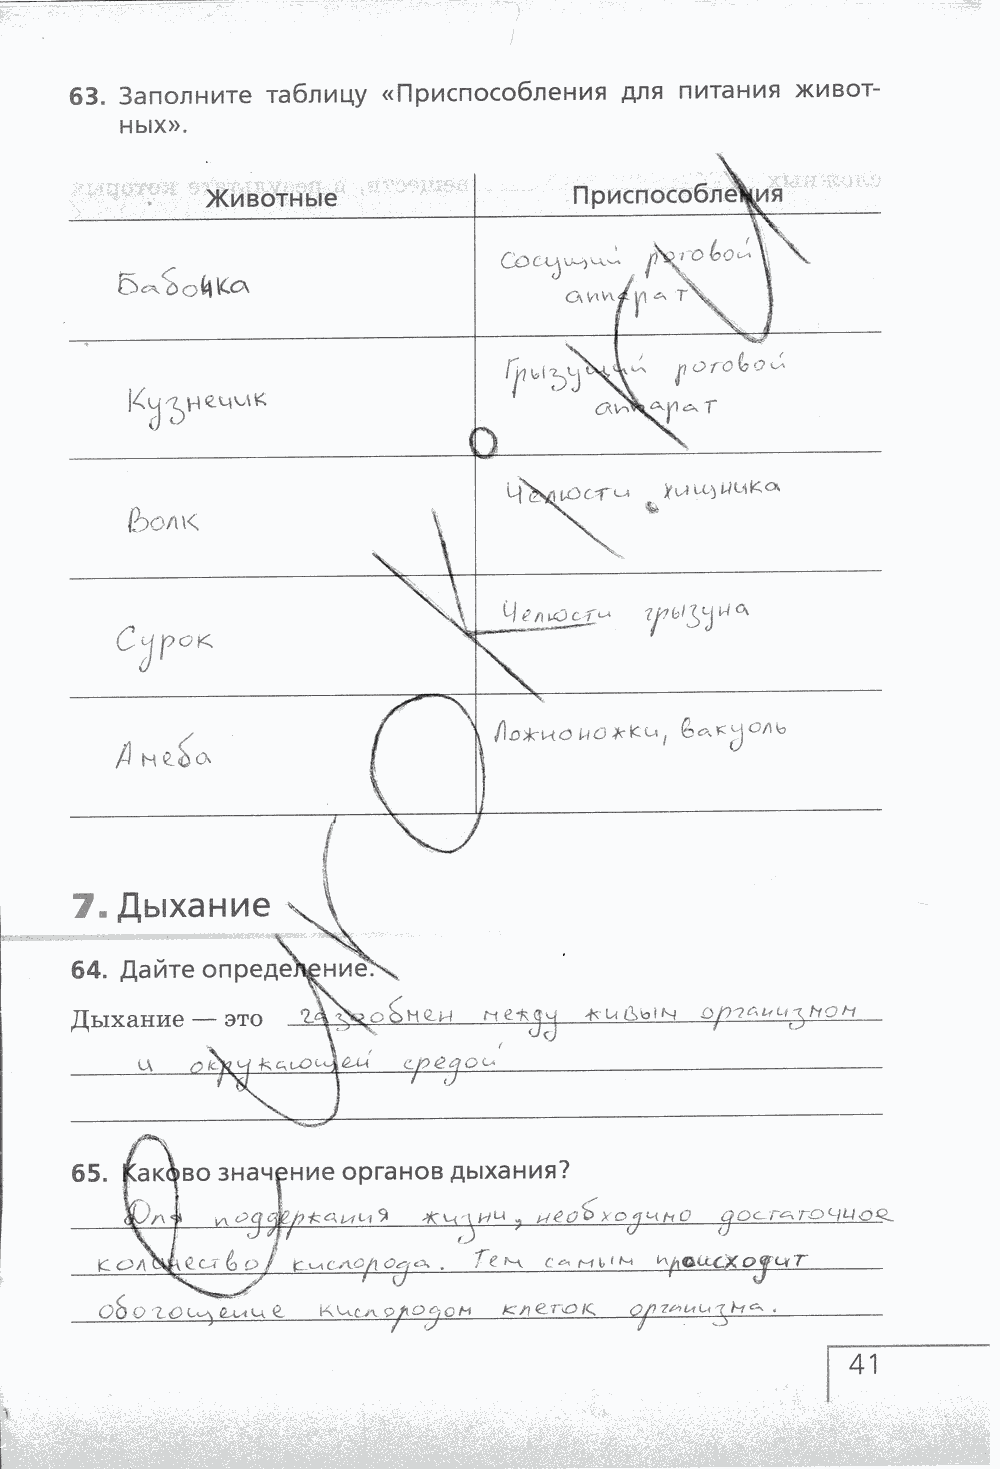 63. Заполните таблицу «Приспособления для питания живот-
ных».
Животные Приспособления
Бабочка Сосущий ротовой
аппарат
Кузнечик Грызущий ротовой
аппарат
Волк Челюсти хищника
Сурок Челюсти грызуна
Амеба Ложноножки, вакуоль
7. Дыхание
64. Дайте определение.
Дыхание — это газообмен между живым организмом
и окружающей средой
65. Каково значение органов дыхания?
Для поддержания жизни, необходимо достаточное
количество кислорода. Тем самым происходит
обогощение кислородом клеток организма.
41